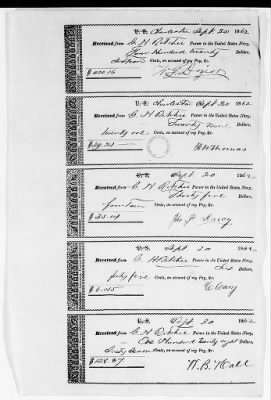 U.S. Charleston Sept 20 1862
Received from G. H. Ritchie Purser in the United States Navy,
Four Hundred twenty Dollars,
Sixteen Cents, on account of my Pay, &c.
$ 420.16
U.S. Charleston Sept 20 1862
Received from G. H. Ritchie Purser in the United States Navy,
Twenty Nine Dollars,
twenty one Cents, on account of my Pay, &c.
$ 29.21 Thomas
Sept 20 1862
Received from G. H. Ritchie Purser in the United States Navy,
Thirty five Dollars,
fourteen Cents, on account of my Pay, &c.
$ 35.14
U.S. Sept 20 1862
Received from G. H. Ritchie Purser in the United States Navy,
Six Dollars,
forty five Cents, on account of my Pay, &c.
$ 6.45 Cleary
U.S. Sept 20 1862
Received from G. H. Ritchie Purser in the United States Navy,
One Hundred Twenty eight Dollars,
Sixty Seven Cents, on account of my Pay, &c.
$ 128.67 W. B. Hall